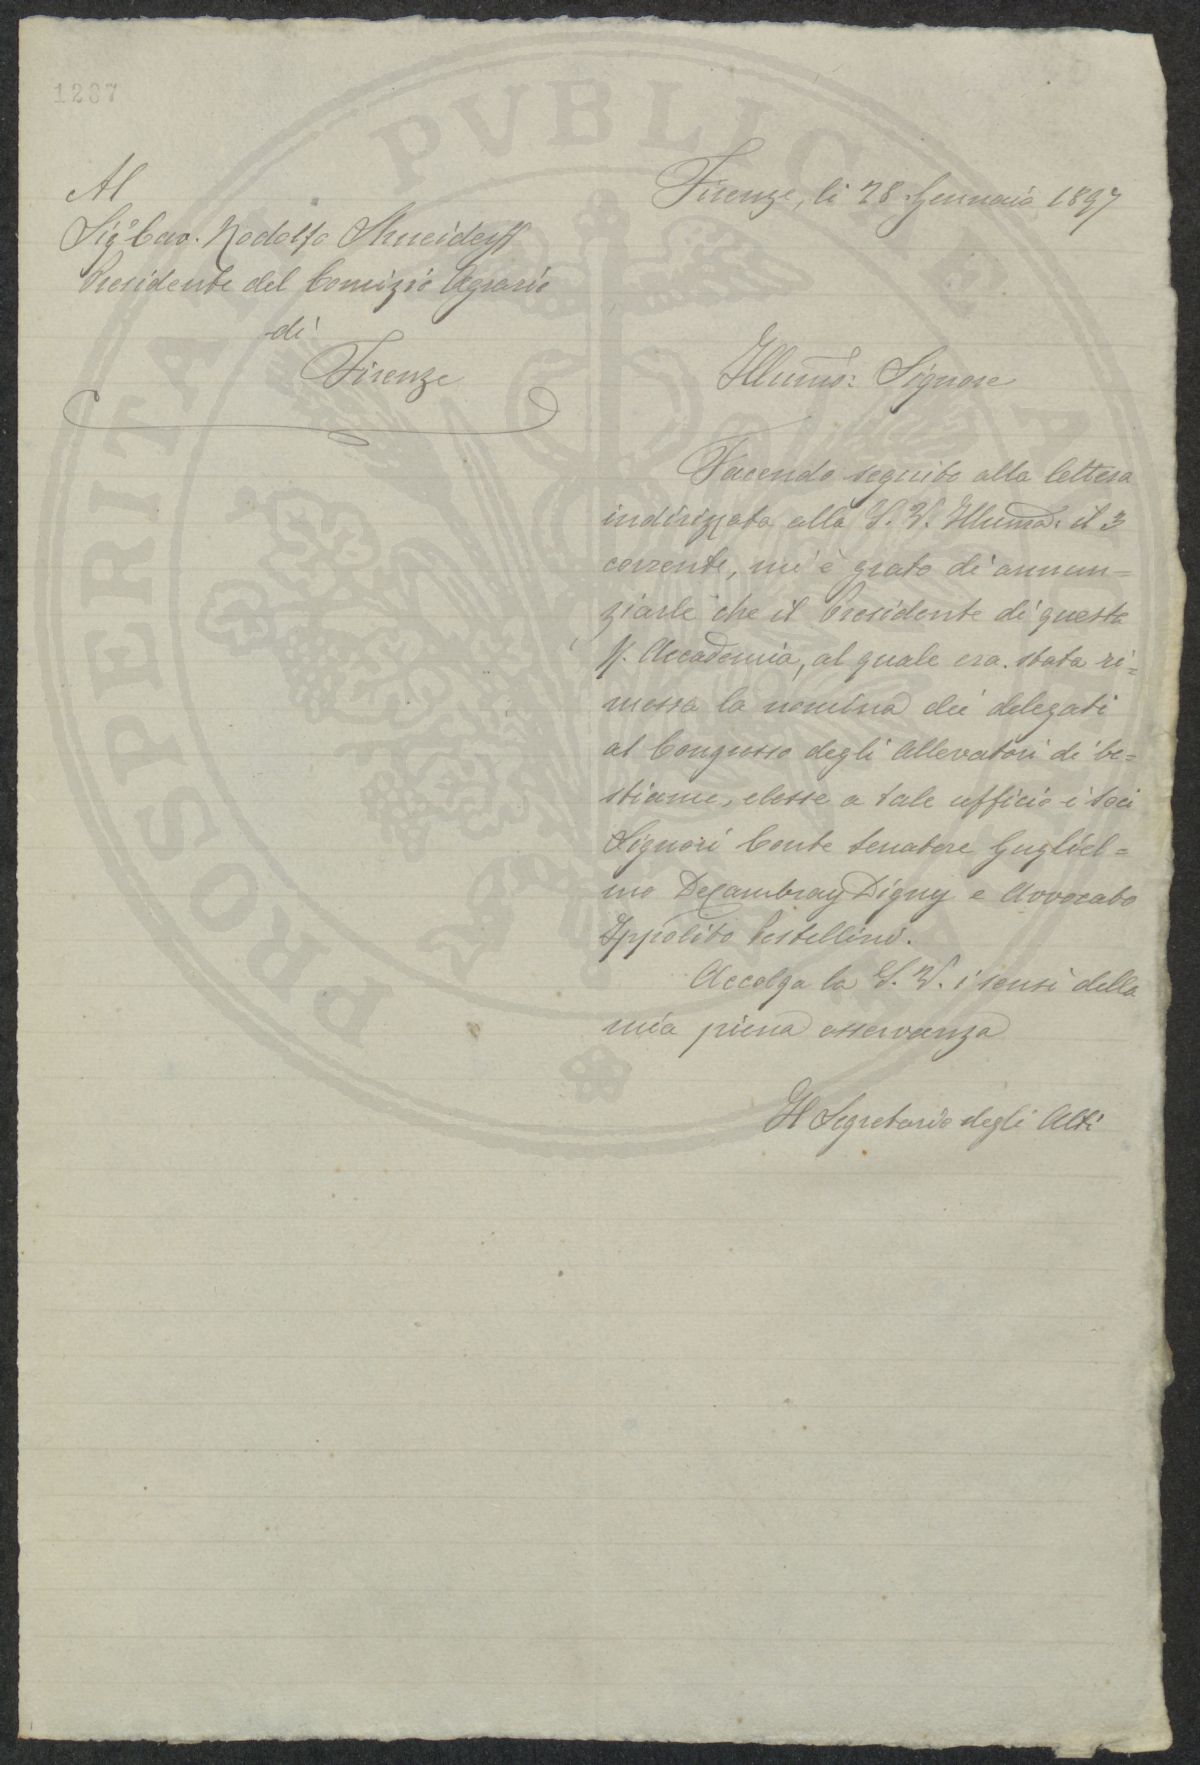 1287
Firenze, li 28 Gennaio 1897
Al
Sig.r Cav. Rodolfo Shneiderff
Presidente del Comizio Agrario
di
Firenze
Illumo: Signore
Facendo seguito alla lettera
indirizzata alla S. V. Illuma: il 3
corrente, mi è grato di annun=
ziarle che il Presidente di questa
R. Accademia, al quale era stata ri=
messa la nomina dei delegati
al Congresso degli Allevatori di be=
stiame, elesse a tale ufficio i soci
Signori Conte senatore Gugliel=
mo DeCambray Digny e Avvocato
Ippolito Pestellini.
Accolga la S. V. i sensi della
mia piena osservanza
Il Segretario degli Atti
PROSPERITATI PVBLICAE